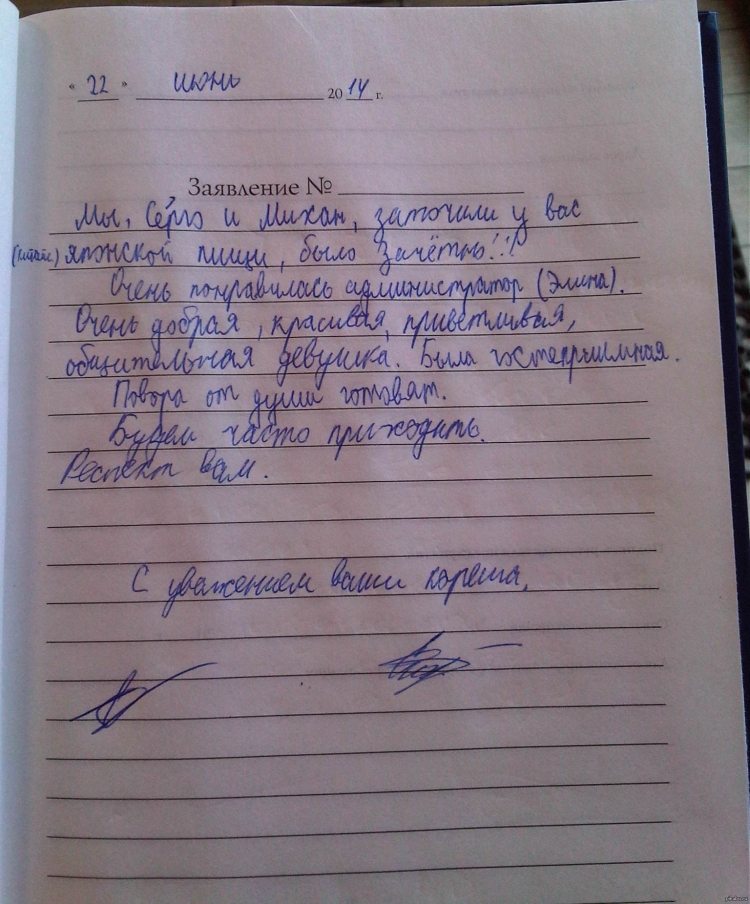 « 22 » июнь 2014 г.
Заявление №
Мы, Сёрго и Михан, заточили у вас
японской пищи, было зачётно!!!
Очень понравилась администратор (Элина).
Очень добрая, красивая, приветливая,
общительная девушка. Была гостеприимная.
Повора от души готовят.
Будем часто приходить.
Респект вам.
С уважением ваши кореша.